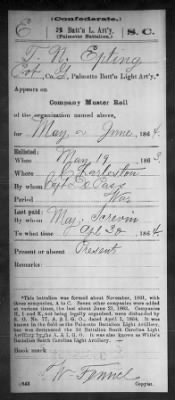 (Confederate.)
E 3 Batt'n L. Art'y. S. C.
(Palmetto Battalion.)
T. N. Epting
Pvt, Co. , Palmetto Batt'n Light Art'y.*
Appears on
Company Muster Roll
of the organization named above,
for May & June, 1864.
Enlisted:
When May 19, 1863.
Where Charleston
By whom Capt
Period War
Last paid:
By whom Maj.
To what time Apl 30, 1864.
Present or absent Present
Remarks:
*This battalion was formed about November, 1861, with three companies, A to C. Seven other companies were added at various times, the last about June 21, 1862. Companies H, I and K, not being legally organized, were disbanded by S. O. No. 77, A. & I. G. O., dated April 1, 1864. It was known in the field as the Palmetto Battalion Light Artillery, but was designated the 3d Battalion South Carolina Light Artillery by the A. & I. G. O. It was also known as White's Battalion South Carolina Light Artillery.
Book mark:
(642)
W.
Copyist.